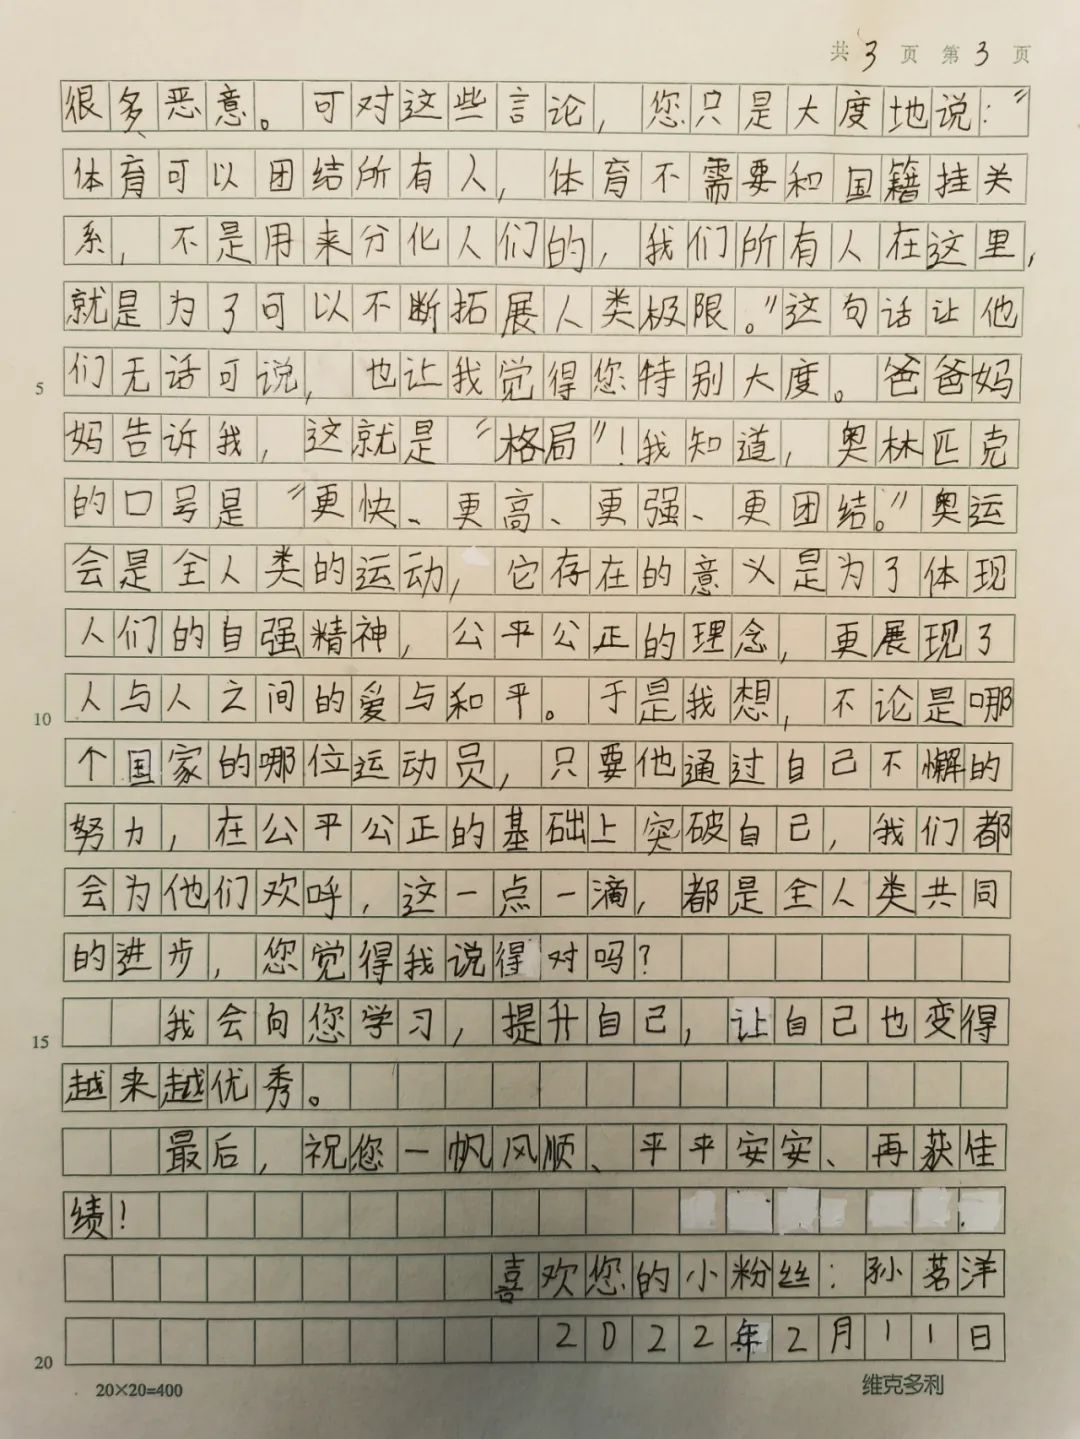 共3页 第3页
很多恶意。可对这些言论，您只是大度地说：“
体育可以团结所有人，体育不需要和国籍挂关
系，不是用来分化人们的，我们所有人在这里，
就是为了可以不断拓展人类极限。”这句话让他
5 们无话可说，也让我觉得您特别大度。爸爸妈
妈告诉我，这就是“格局”！我知道，奥林匹克
的口号是“更快、更高、更强、更团结。”奥运
会是全人类的运动，它存在的意义是为了体现
人们的自强精神，公平公正的理念，更展现了
10 人与人之间的爱与和平。于是我想，不论是哪
个国家的哪位运动员，只要他通过自己不懈的
努力，在公平公正的基础上突破自己，我们都
会为他们欢呼，这一点一滴，都是全人类共同
的进步，您觉得我说得对吗？
15 我会向您学习，提升自己，让自己也变得
越来越优秀。
最后，祝您一帆风顺、平平安安、再获佳
绩！
喜欢您的小粉丝：孙茗洋
20 2022年2月11日
20×20=400 维克多利